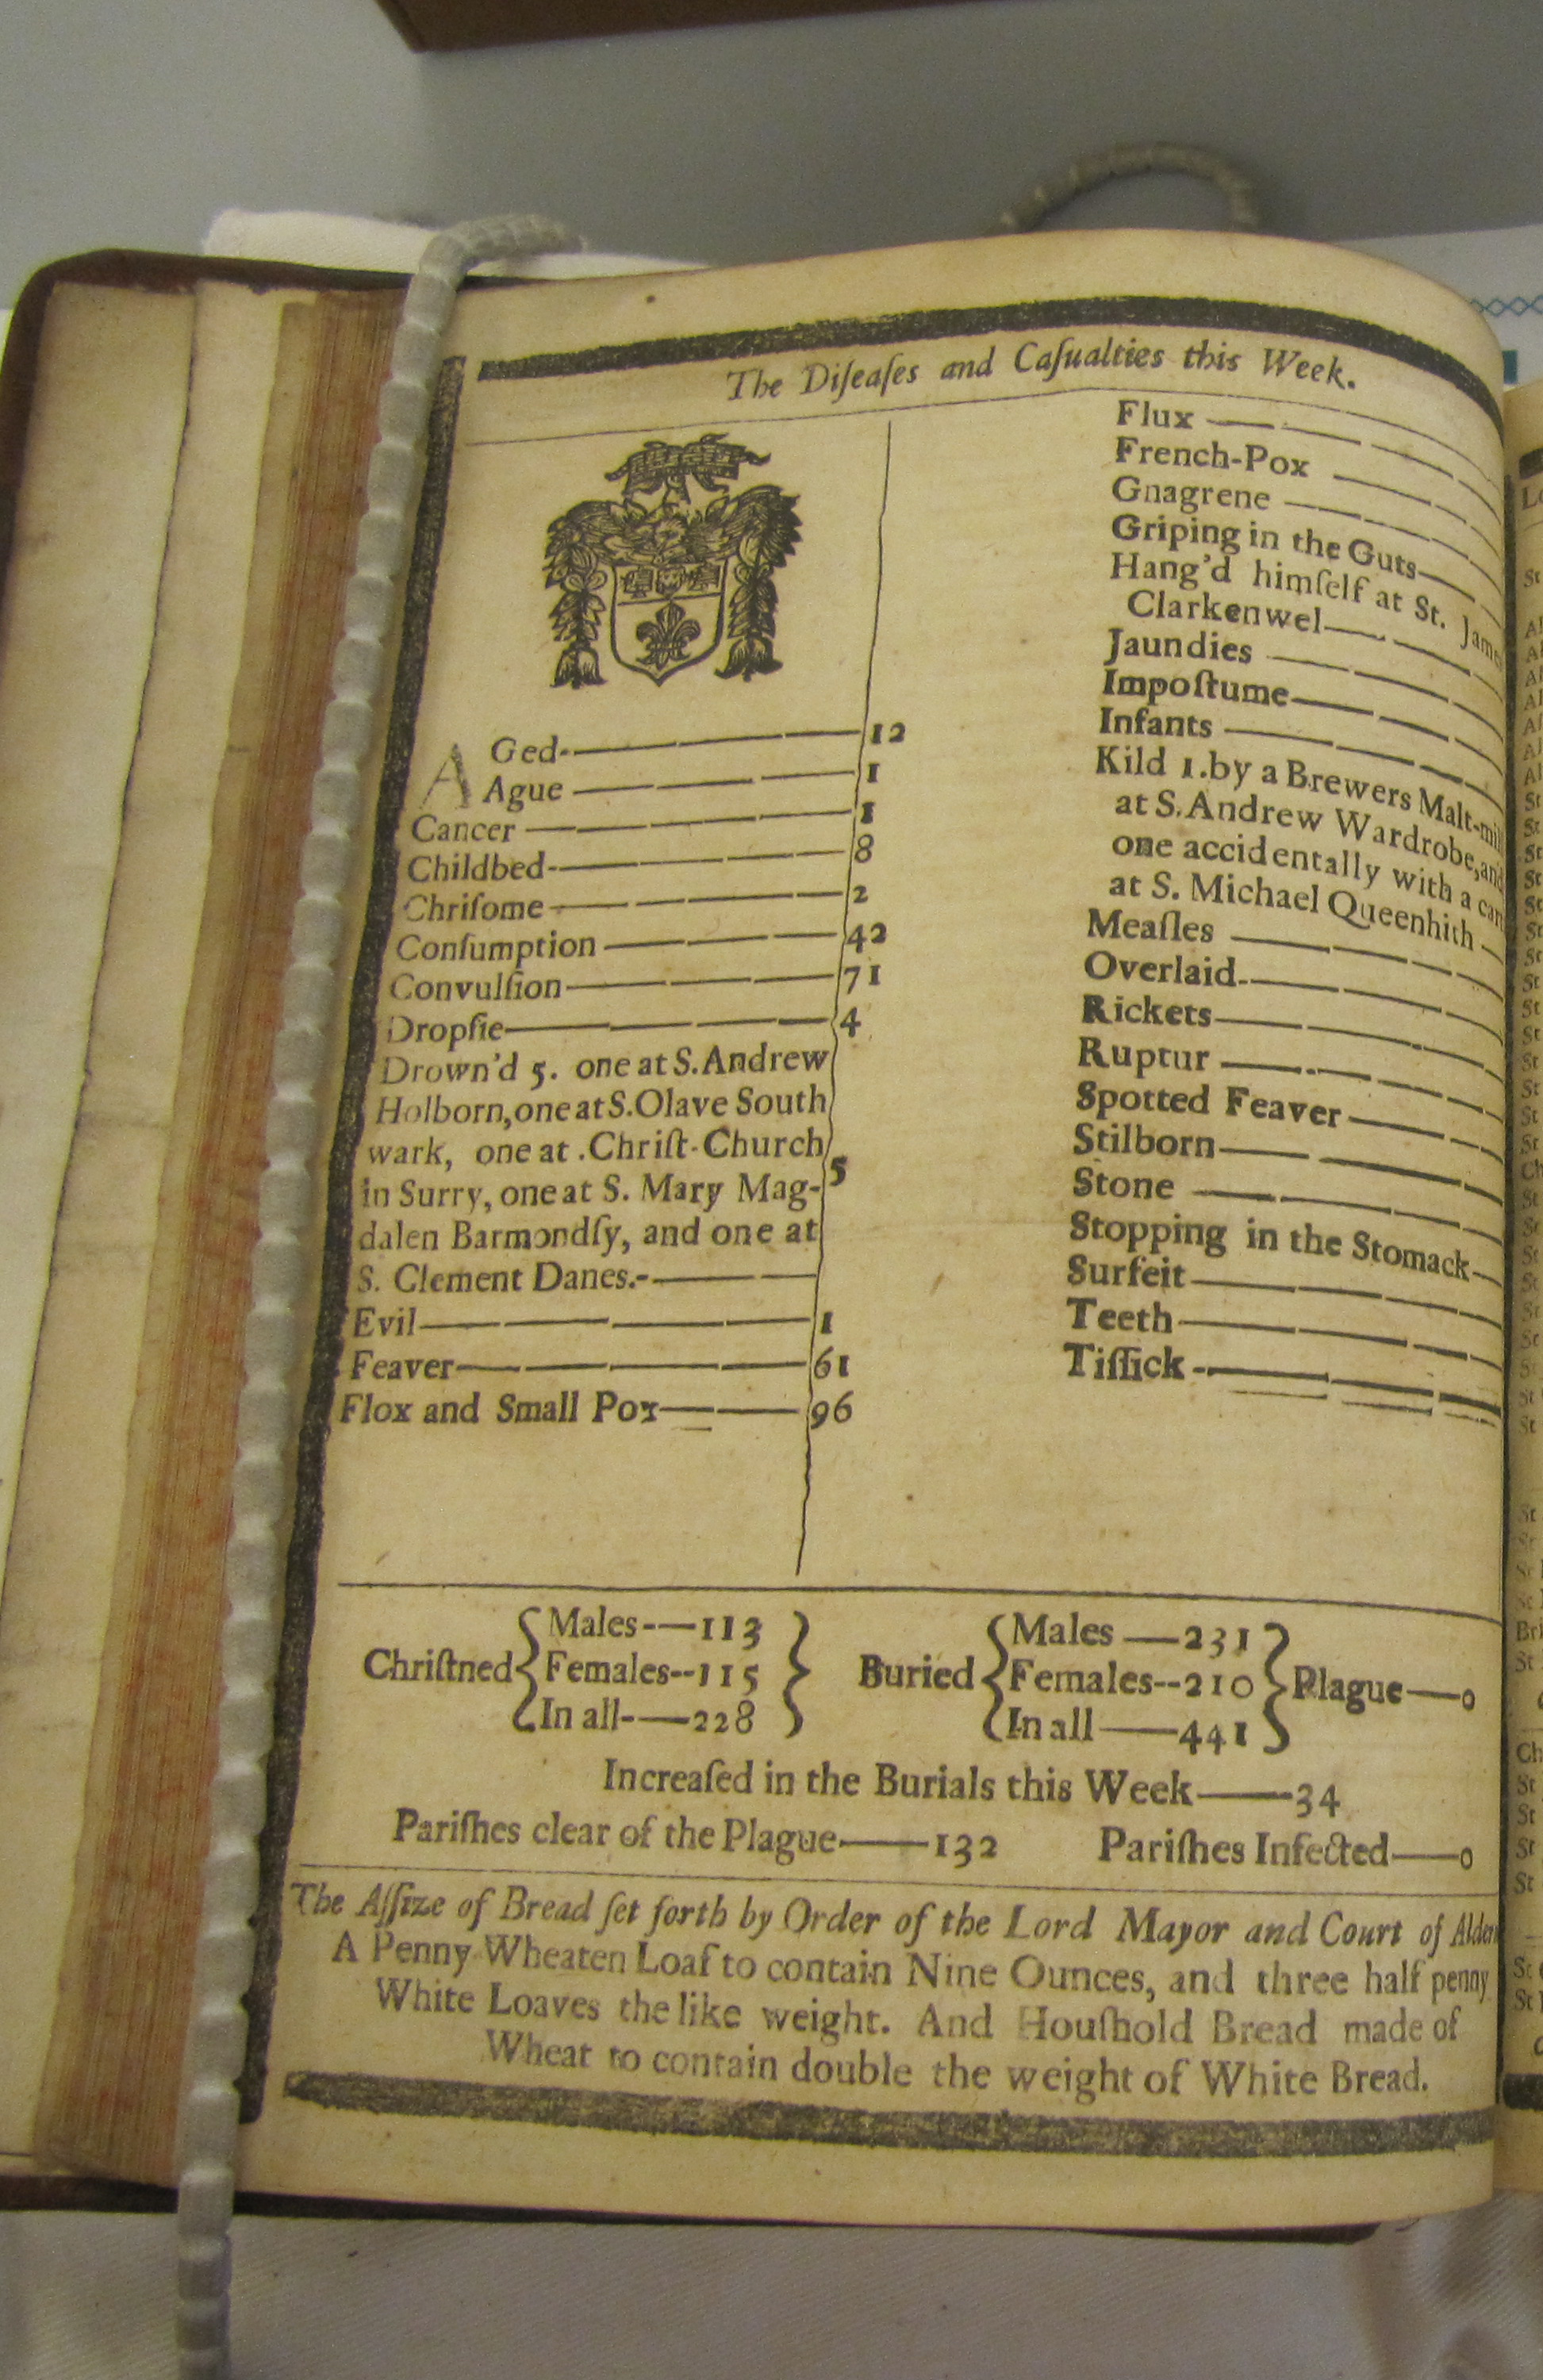 The Diſeaſes and Caſualties this Week.
AGed 12
Ague 1
Cancer 1
Childbed 8
Chriſome 2
Conſumption 42
Convulſion 71
Dropſie 4
Drown'd 5. one at S. Andrew
Holborn, one at S. Olave South
wark, one at . Chriſt-Church
in Surry, one at S. Mary Mag- 5
dalen Barmondſy, and one at
S. Clement Danes.
Evil 1
Feaver 61
Flox and Small Pox 96
Flux
French-Pox
Gnagrene
Griping in the Guts
Hang'd himſelf at St.
Clarkenwel
Jaundies
Impoſtume
Infants
Kild 1. by a Brewers
at S. Andrew Wardrobe,
one accidentally with a
at S. Michael Queenhith
Meaſles
Overlaid
Rickets
Ruptur
Spotted Feaver
Stilborn
Stone
Stopping in the Stomack
Surfeit
Teeth
Tiſſick
Chriſtned
Males 113
Females 115
In all 228
Buried
Males 231
Females 210
In all 441
Plague 0
Increaſed in the Burials this Week 34
Pariſhes clear of the Plague 132 Pariſhes Infected 0
The Aſſize of Bread ſet forth by Order of the Lord Mayor and Court of
A Penny Wheaten Loaf to contain Nine Ounces, and three half penny
White Loaves the like weight. And Houſhold Bread made of
Wheat to contain double the weight of White Bread.